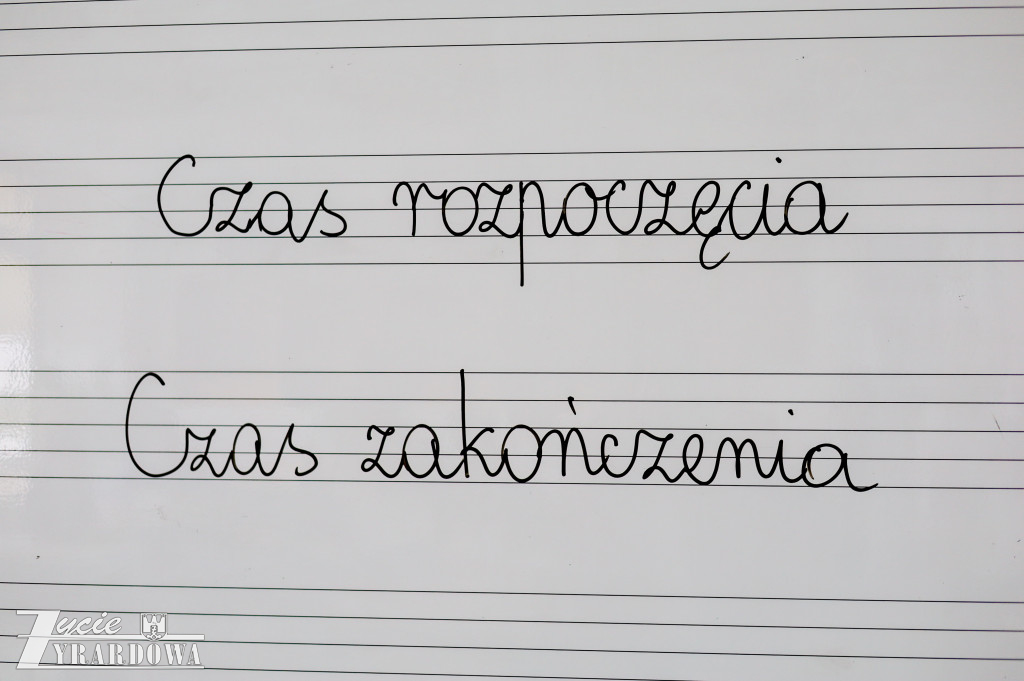 Czas rozpoczęcia
Czas zakończenia
Życie
ŻYRARDOWA